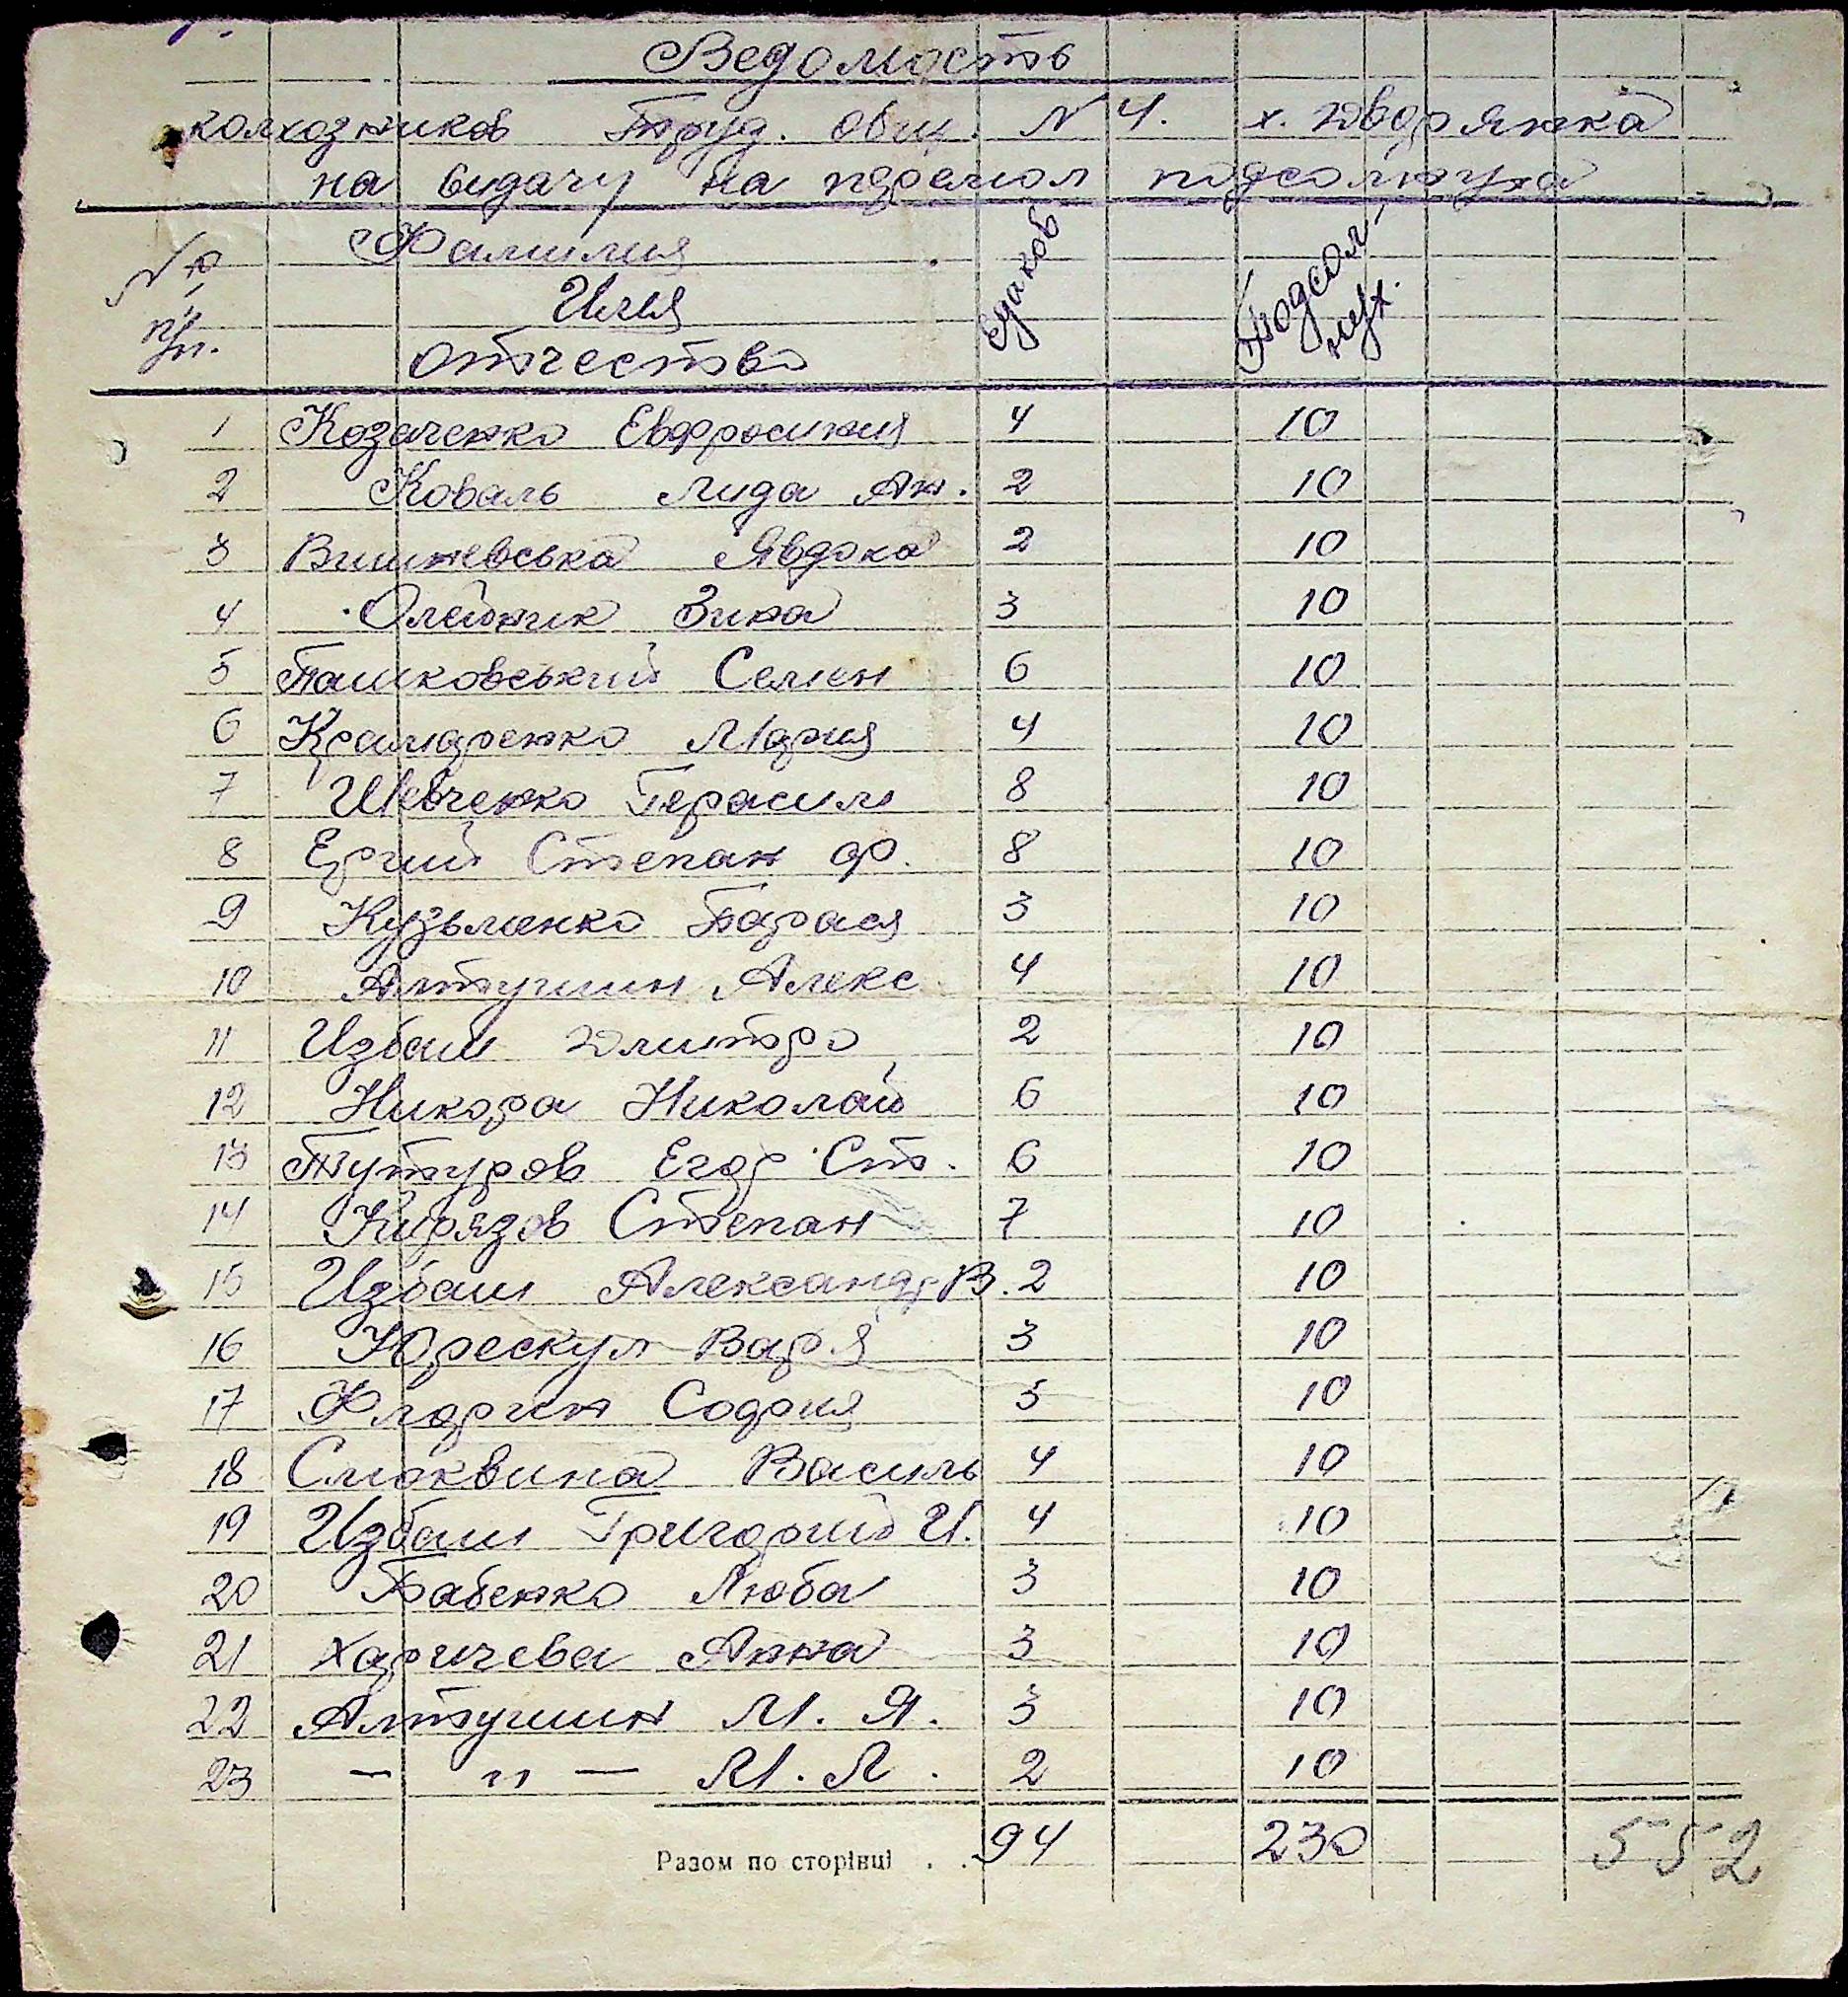 Ведомость
колхозников Труд. общ. N 4. х. Дворянка
на видачу на перемол подсолнуха
№ п/п. Фамилия Имя отчество Едаков Подсолнух.
1 Козаченко Евфросиния 4 10
2 Коваль Лида Ан. 2 10
3 Вишневська Явдока 2 10
4 Олейник Зина 3 10
5 Пашковський Семен 6 10
6 Крамаренко Мария 4 10
7 Шевченко Герасим 8 10
8 Ергий Степан Ф. 8 10
9 Кузьменко Парася 3 10
10 Алтушин Алекс 4 10
11 Избаш Дмитро 2 10
12 Никора Николай 6 10
13 Тутуров Егор Ст. 6 10
14 Кирязов Степан 7 10
15 Избаш Александр В. 2 10
16 Юрескул Варя 3 10
17 Флорин София 5 10
18 Смоквина Василь 4 10
19 Избаш Григорий И. 4 10
20 Бабенко Люба 3 10
21 Харичева Анна 3 10
22 Алтушин М. Я. 3 10
23 — " — М. Л. 2 10
Разом по сторінці . . 94 230 552